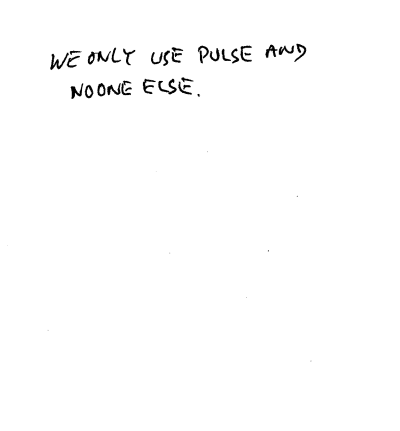 WE ONLY USE PULSE AND
NOONE ELSE.